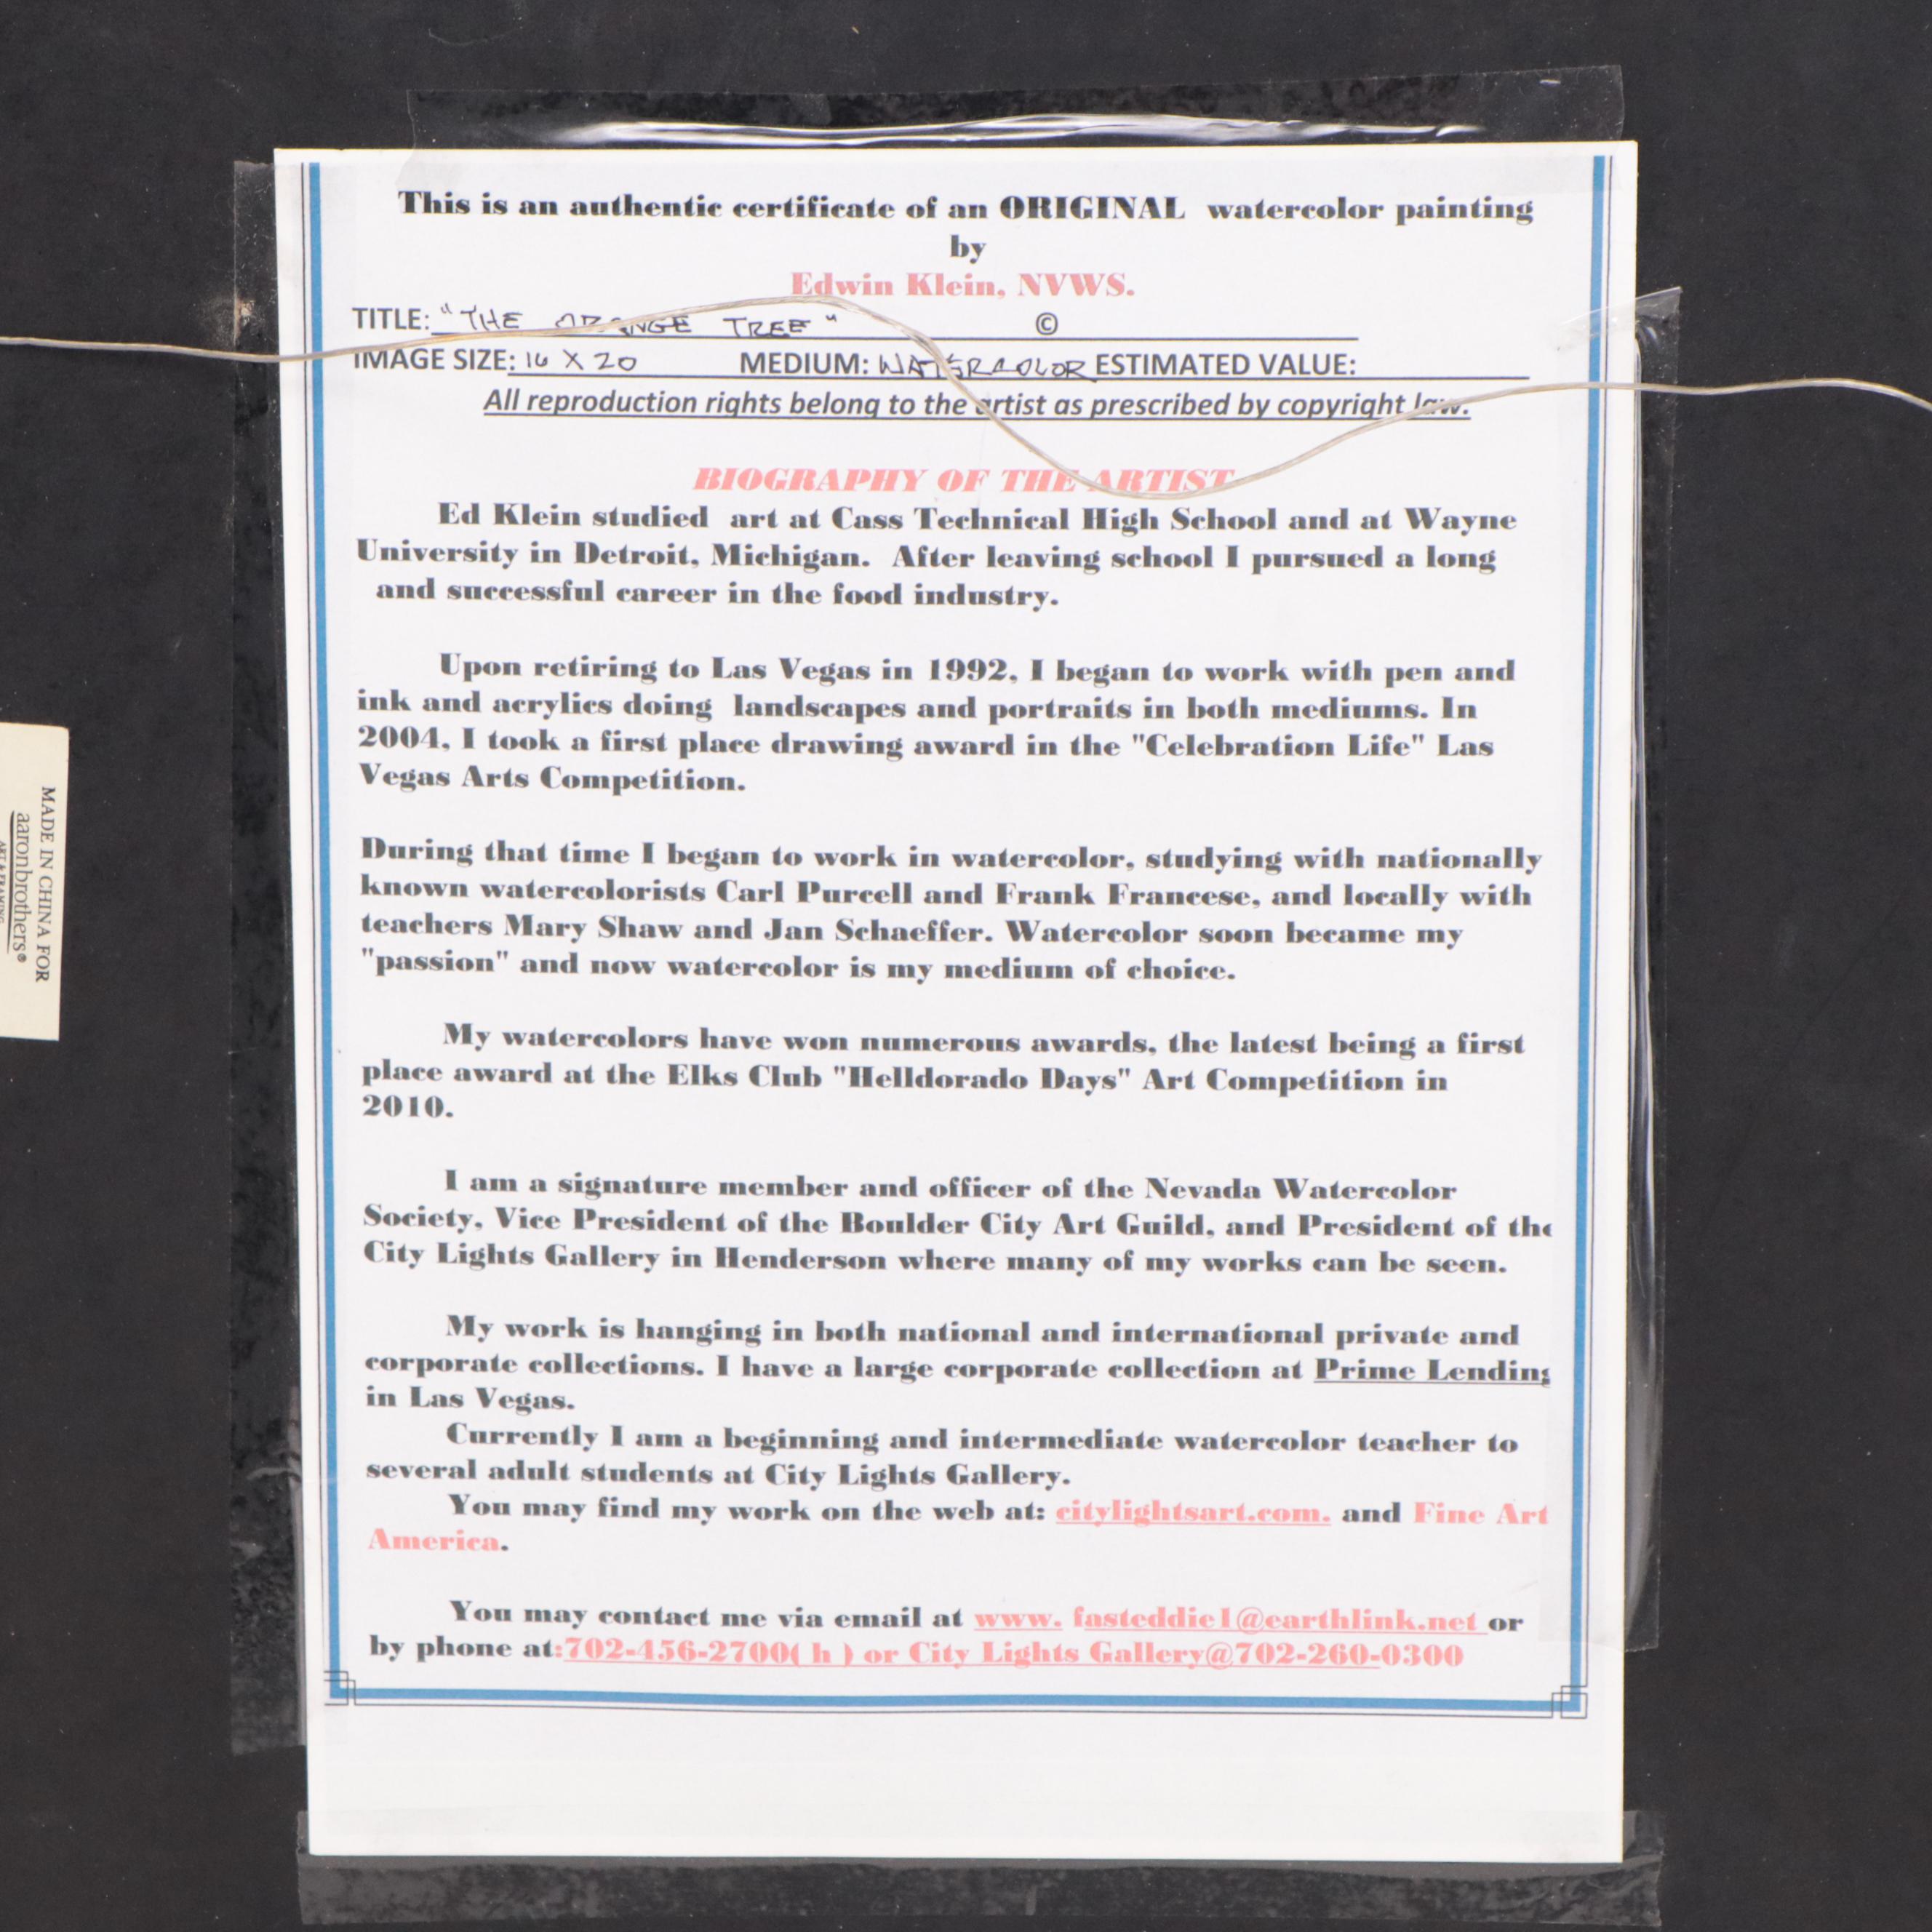 This is an authentic certificate of an ORIGINAL watercolor painting
by
Edwin Klein, NVWS.
TITLE: "THE ORANGE TREE" ©
IMAGE SIZE: 16 X 20 MEDIUM: WATERCOLOR ESTIMATED VALUE:
All reproduction rights belong to the artist as prescribed by copyright law.
BIOGRAPHY OF THE ARTIST
Ed Klein studied art at Cass Technical High School and at Wayne
University in Detroit, Michigan. After leaving school I pursued a long
and successful career in the food industry.
Upon retiring to Las Vegas in 1992, I began to work with pen and
ink and acrylics doing landscapes and portraits in both mediums. In
2004, I took a first place drawing award in the "Celebration Life" Las
Vegas Arts Competition.
During that time I began to work in watercolor, studying with nationally
known watercolorists Carl Purcell and Frank Francese, and locally with
teachers Mary Shaw and Jan Schaeffer. Watercolor soon became my
"passion" and now watercolor is my medium of choice.
My watercolors have won numerous awards, the latest being a first
place award at the Elks Club "Helldorado Days" Art Competition in
2010.
I am a signature member and officer of the Nevada Watercolor
Society, Vice President of the Boulder City Art Guild, and President of the
City Lights Gallery in Henderson where many of my works can be seen.
My work is hanging in both national and international private and
corporate collections. I have a large corporate collection at Prime Lending
in Las Vegas.
Currently I am a beginning and intermediate watercolor teacher to
several adult students at City Lights Gallery.
You may find my work on the web at: citylightsart.com. and Fine Art
America.
You may contact me via email at www. fasteddie1@earthlink.net or
by phone at:702-456-2700( h ) or City Lights Gallery@702-260-0300
MADE IN CHINA FOR
aaronbrothers®